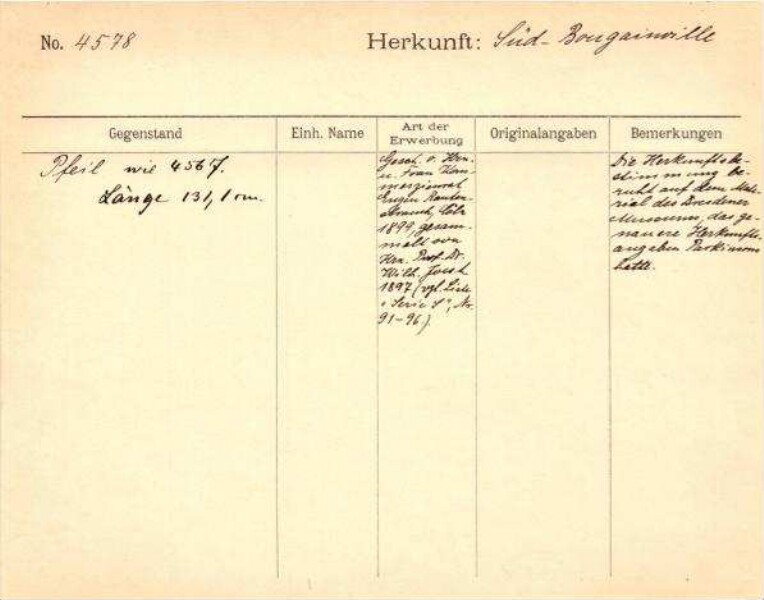 No. 4578
Herkunft: Süd-Bougainville
Gegenstand
Einh. Name
Art der
Erwerbung
Originalangaben
Bemerkungen
Pfeil wie 4567.
Länge 131,1 cm.
Gesch. v. Hrn.
u. Frau Kom-
merzienrat
Eugen Rauten-
strauch, Cöln
1899, gesam-
melt von
Hrn. Prof. Dr.
Wilh. Joest
1897 (vgl. Liste
"Serie S", No.
91-96.)
Die Herkunftsbe-
stimmung be-
ruht auf dem Mate-
rial des Dresdener
Museums, das ge-
nauere Herkunfts-
angaben Parkinsons
hatte.